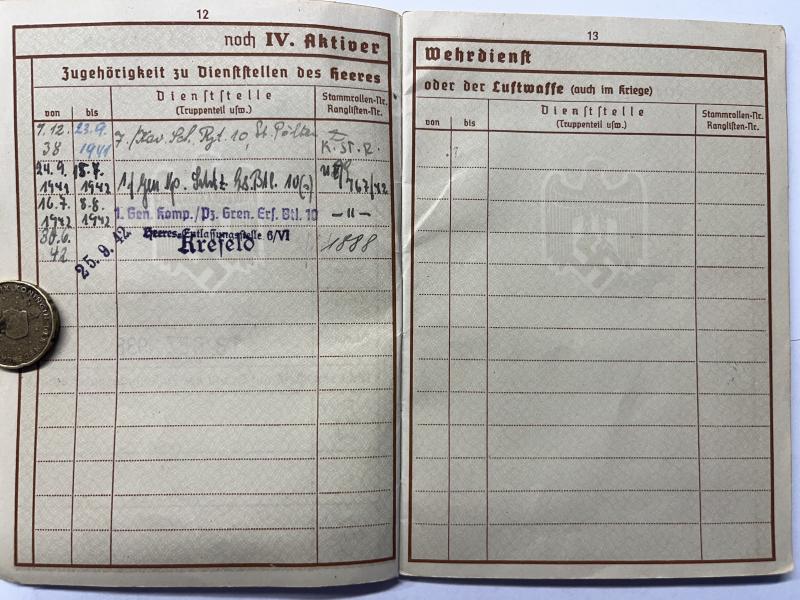 12
noch IV. Aktiver
Zugehörigkeit zu Dienststellen des Heeres
von bis
Dienststelle
(Truppenteil usw.)
Stammrollen-Nr.
Ranglisten-Nr.
1.12. 23.9. 7./Kav. Sch. Rgt. 10, St. Pölten
38 1941 K. St. R.
24.9. 15.7.
1941 1942 767/42
16.7. 8.8. 1. Gen. Komp./Pz. Gren. Ers. Btl. 10 – 〃 –
1942 1942
30.6. 25.9.42. Heeres-Entlassungsstelle 6/VI 1888
42 Krefeld
13
Wehrdienst
oder der Luftwaffe (auch im Kriege)
von bis
Dienststelle
(Truppenteil usw.)
Stammrollen-Nr.
Ranglisten-Nr.